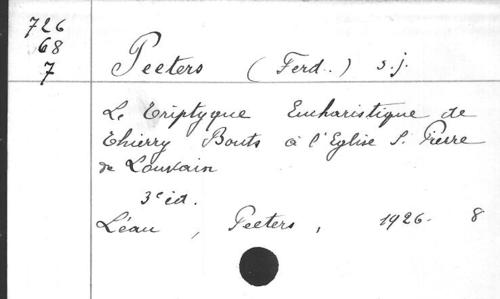 726
68
7
Peeters (Ferd..) s.j.
Le Triptyque Eucharistique de
Thierry Bouts à l'Eglise S. Pierre
de Louvain
3e éd.
Léau, Peeters, 1926. 8